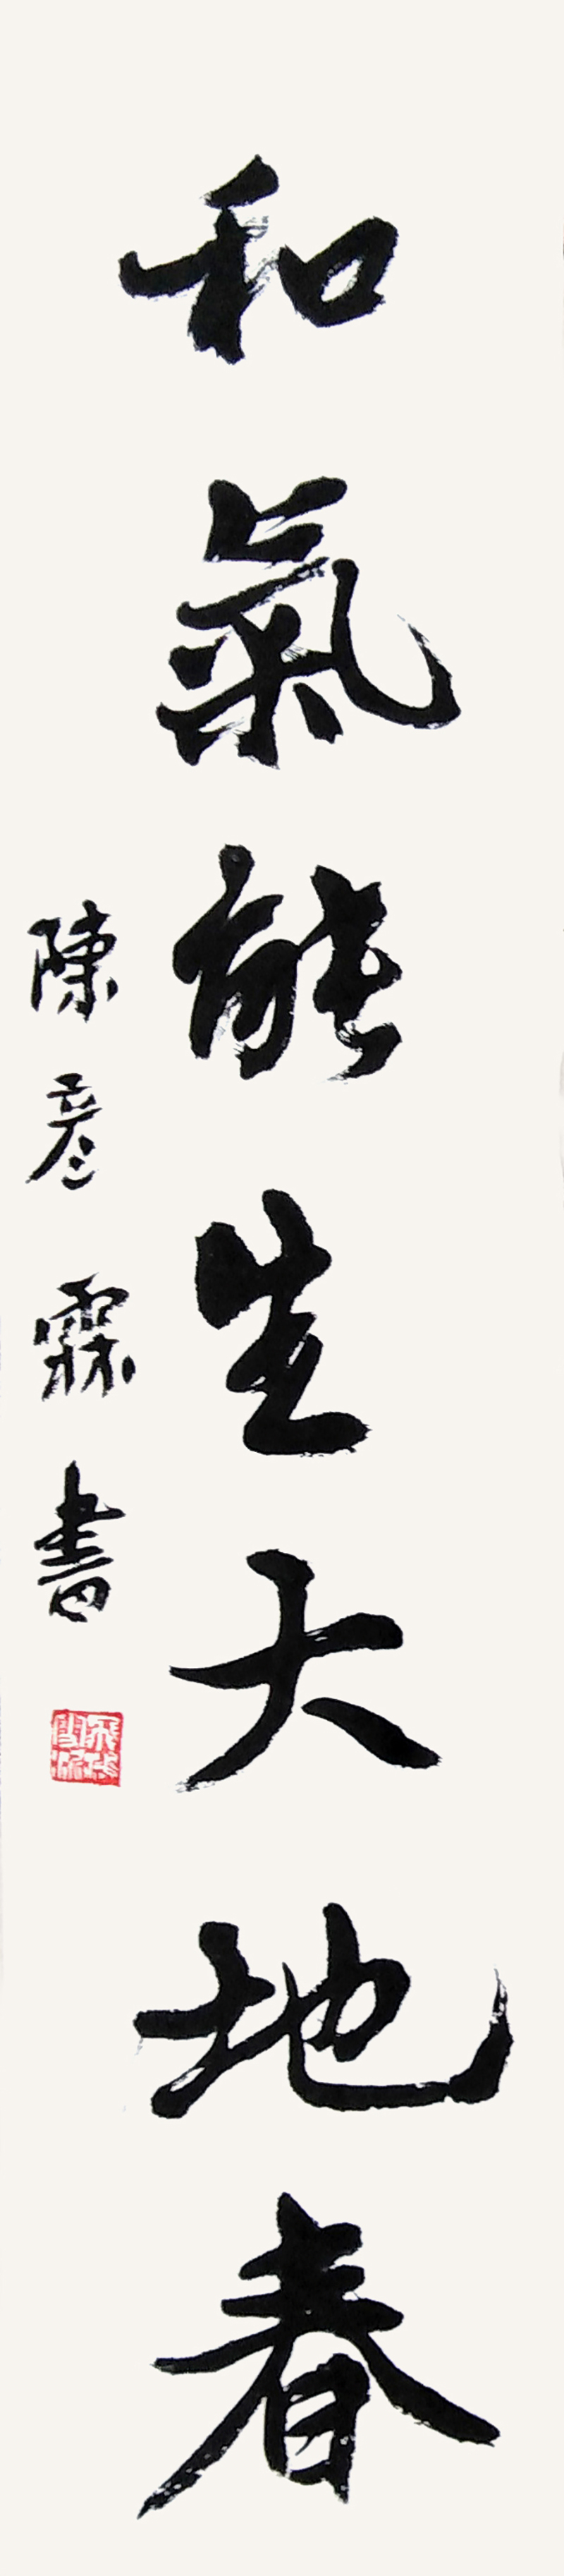 和氣能生大地春
陳彥霖書